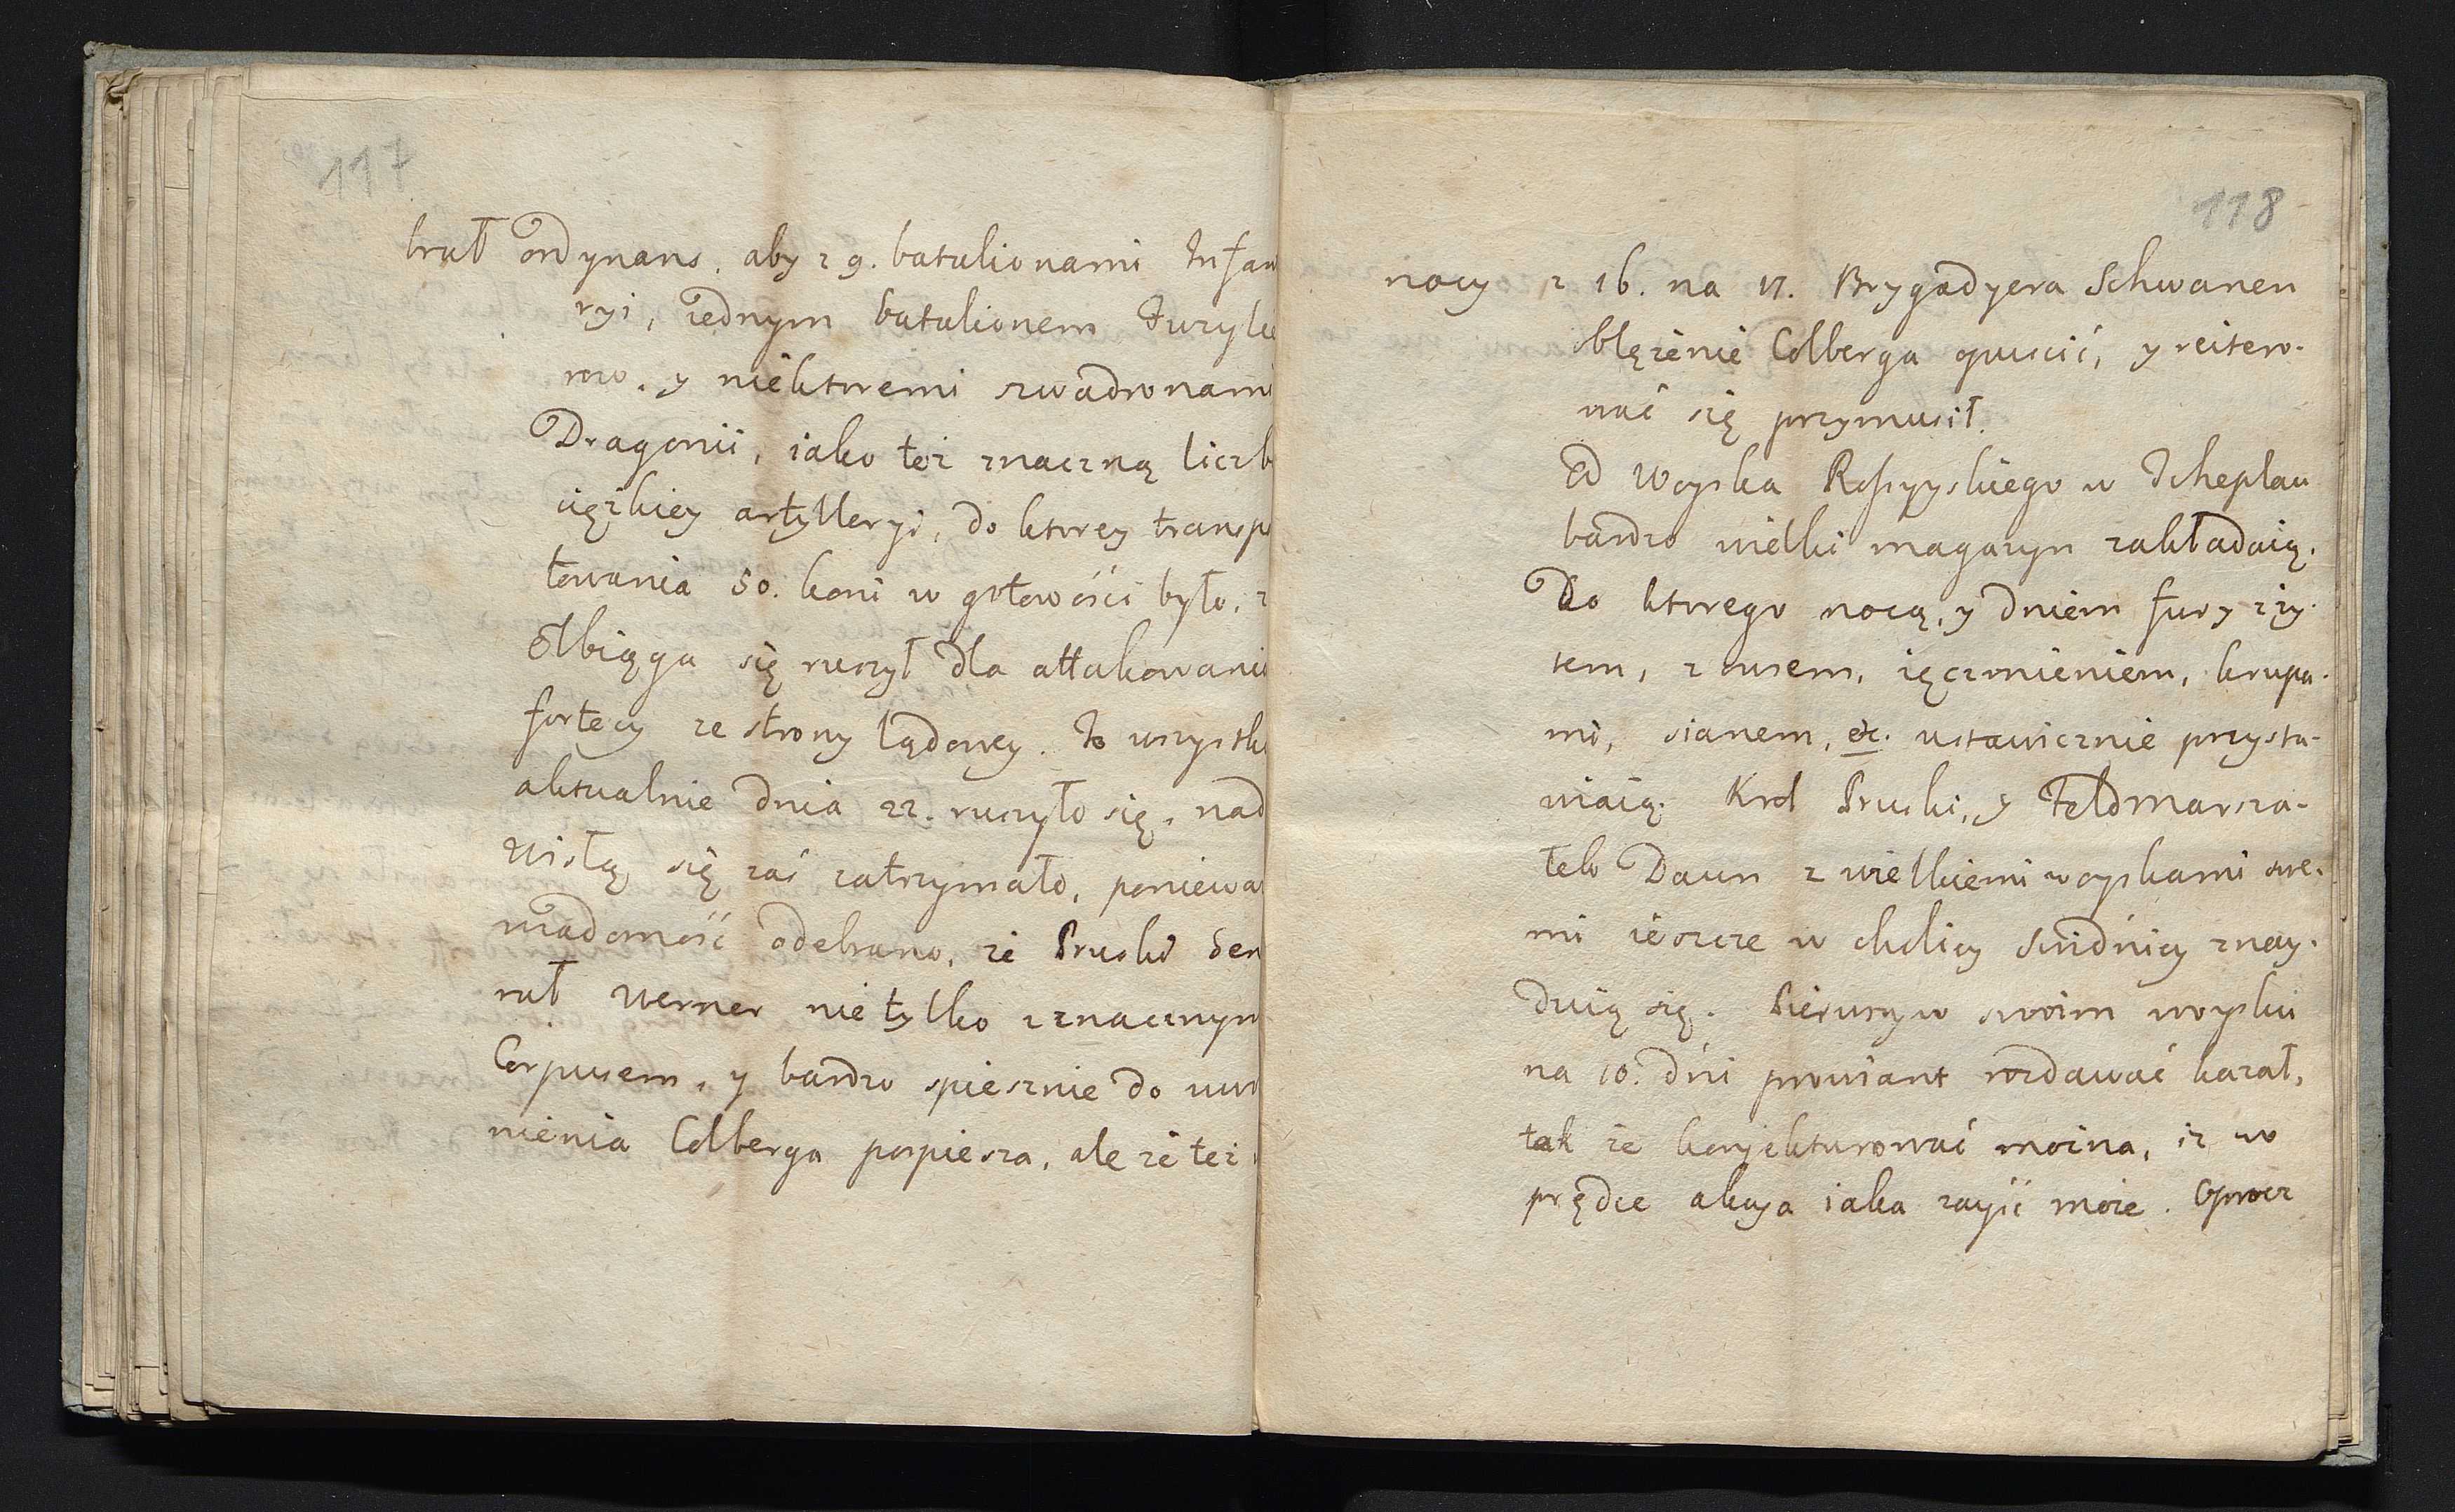 117
brał ordynans, aby z 9. batalionami Infan
ryi, iednym batalionem Fuzylie
row, y niektoremi szwadronami
Dragonii, iako też znaczną liczb
ciężkiey artylleryi, do ktorey transp
towania 50. koni w gotowości było, z
Olbiąga się ruszył dla attakowania
fortecy ze strony lądowey. To wszystko
aktualnie dnia 22. ruszyło się, nad
Wisłą się zaś zatrzymało, poniewa
wiadomość odebrano, że Pruski Gen
rał Werner nie tylko z znacznym
Corpusem, y bardzo spiesznie do uwol
nienia Colberga pospiesza, ale że też
118
nocy z 16. na 17. Brygadyera Schwanen
oblężenie Colberga opuścić, y reitero-
wać się przymusił.
Od Woyska Rossyyskiego w
bardzo wielki magazyn zakładaią.
Do ktorego nocą, y dniem fury z ży-
tem, z owsem, ięczmieniem, krupa-
mi, sianem, etc. ustawicznie przysta-
wiaią. Krol Pruski, y Feldmarsza-
łek Daun z wielkiemi woyskami swe-
mi ieszcze w okolicy Swidnicy znay-
duią się. Pierwszy w swoim woysku
na 10. dni prowiant rozdawać kazał,
tak że konjekturować można, iż w
prędce akcya iaka zayść może. Oprocz